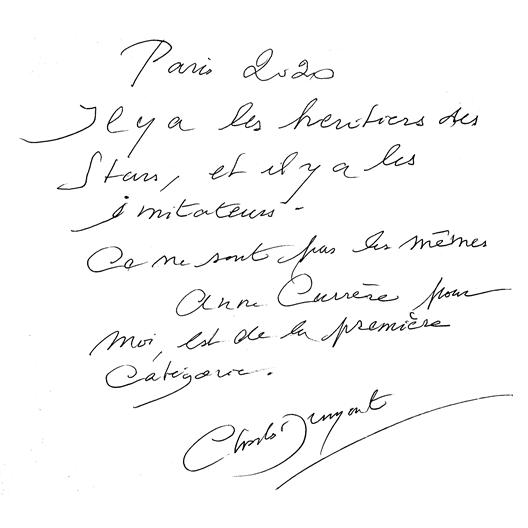 Paris 2020
Il y a les heritiers des
Stars, et il y a les
imitateurs -
Ce ne sont pas les mêmes
Anne Carrère pour
moi, est de la première
Catégorie.
Charles Dumont